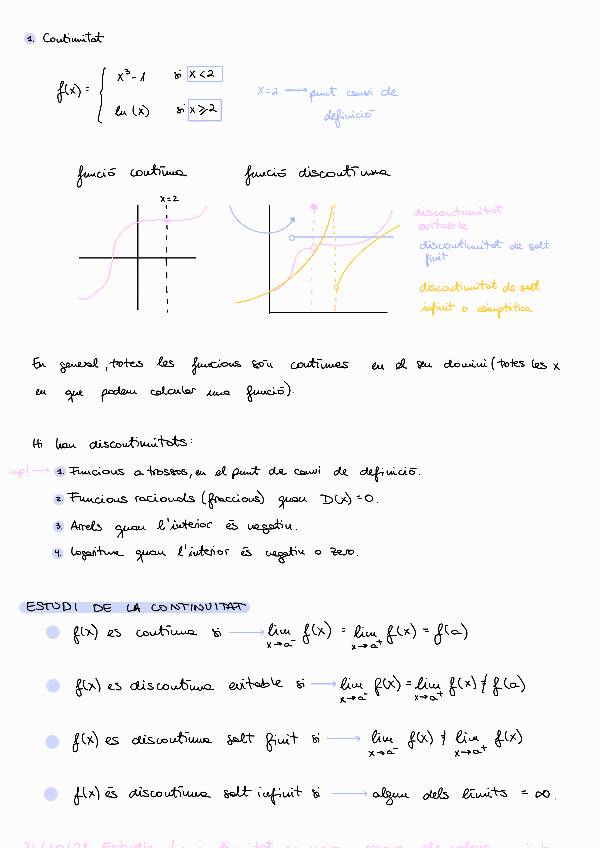 1. Continuitat
f(x) = { x³-1 si x<2
ln(x) si x⩾2
x=2 ⟶ punt canvi de
definició
funció contínua funció discontínua
x=2
discontinuitat
evitable
discontinuitat de salt
finit
discontinuitat de salt
infinit o asimptòtica
En general, totes les funcions són contínues en el seu domini (totes les x
en que podem calcular una funció).
Hi han discontinuitats:
imp! ⟶ 1. Funcions a trossos, en el punt de canvi de definició.
2. Funcions racionals (fraccions) quan D(x)=0.
3. Arrels quan l'interior és negatiu.
4. Logaritme quan l'interior és negatiu o zero.
ESTUDI DE LA CONTINUITAT
f(x) és contínua si ⟶ lim x→a⁻ f(x) = lim x→a⁺ f(x) = f(a)
f(x) és discontínua evitable si ⟶ lim x→a⁻ f(x) = lim x→a⁺ f(x) ≠ f(a)
f(x) és discontínua salt finit si ⟶ lim x→a⁻ f(x) ≠ lim x→a⁺ f(x)
f(x) és discontínua salt infinit si ⟶ algun dels límits = ∞.